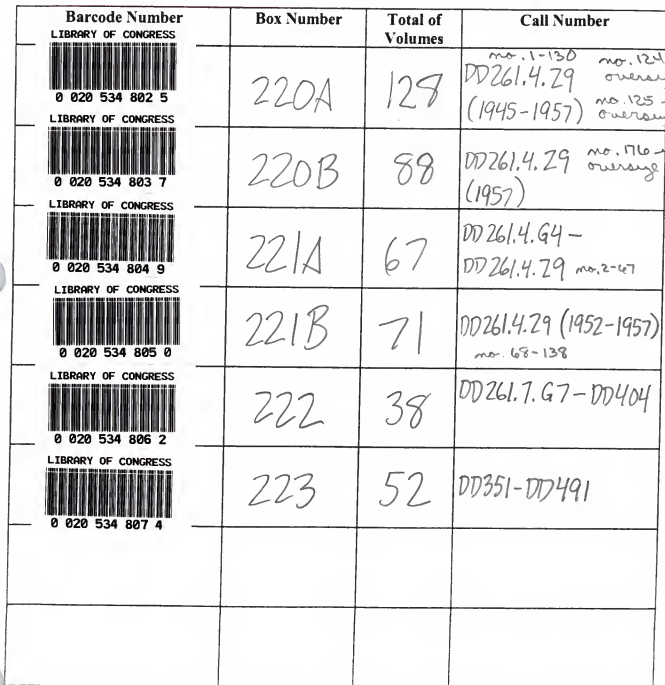 Barcode Number Box Number Total of Volumes Call Number
LIBRARY OF CONGRESS
0 020 534 802 5
220A
128
no. 1-130 no. 124
DD261.4.Z9
(1945-1957) no. 125-
LIBRARY OF CONGRESS
0 020 534 803 7
220B
88
DD261.4.Z9 no. 176-
(1957) oversize
LIBRARY OF CONGRESS
0 020 534 804 9
221A
67
DD261.4.G4-
DD261.4.Z9 no. 2-67
LIBRARY OF CONGRESS
0 020 534 805 0
221B
71
DD261.4.Z9 (1952-1957)
no. 68-138
LIBRARY OF CONGRESS
0 020 534 806 2
222
38
DD261.7.G7-DD404
LIBRARY OF CONGRESS
0 020 534 807 4
223
52
DD351-DD491